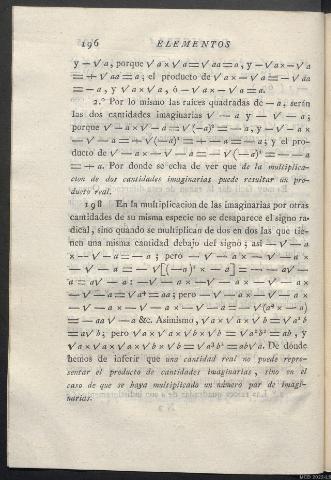 196 ELEMENTOS
y — √a, porque √a × √a = √aa = a, y — √a × — √a
= + √aa = a; el producto de √a × — √a = — √aa
= — a, y √a × √a, ó — √a × — √a = a.
2.º Por lo mismo las raices quadradas de — a, serán
las dos cantidades imaginarias √ — a y — √ — a;
porque √ — a × √ — a = √(—a)² = — a, y — √ — a ×
— √ — a = + √(—a)² = + — a = — a; y el pro-
ducto de √ — a × — √ — a = — √(—a)² = — — a
= + a. Por donde se echa de ver que de la multiplica-
cion de dos cantidades imaginarias puede resultar un pro-
ducto real.
198 En la multiplicacion de las imaginarias por otras
cantidades de su misma especie no se desaparece el signo ra-
dical, sino quando se multiplican de dos en dos las que tie-
nen una misma cantidad debajo del signo; asi — √ — a
× — √ — a = — a; pero — √ — a × — √ — a ×
— √ — a = — √[(—a)² × — a] = — — a√ —
a = a√ — a: — √ — a × — √ — a × — √ — a ×
— √ — a = √a⁴ = aa; pero — √ — a × — √ — a ×
— √ — a × — √ — a × — √ — a = — √(a⁴ × — a)
= — aa √ — a &c. Asimismo, √a × √a × √b = √a²b
= a√b; pero √a × √a × √b × √b = √a²b² = ab, y
√a × √a × √a × √b × √b = √a³b² = ab√a. De donde
hemos de inferir que una cantidad real no puede repre-
sentar el producto de cantidades imaginarias, sino en el
caso de que se haya multiplicado un número par de imagi-
narias.